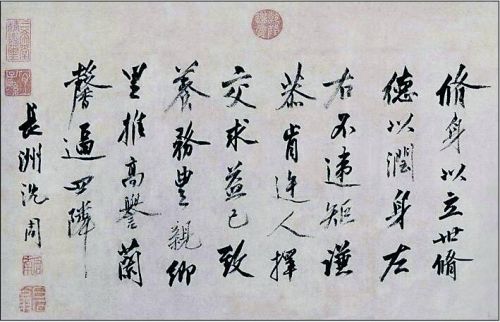 脩身以立世脩
德以潤身左
右不違矩謙
恭肯迕人擇
交求益己致
養務豐親鄉
里推高譽蘭
馨逼四隣
長洲沈周